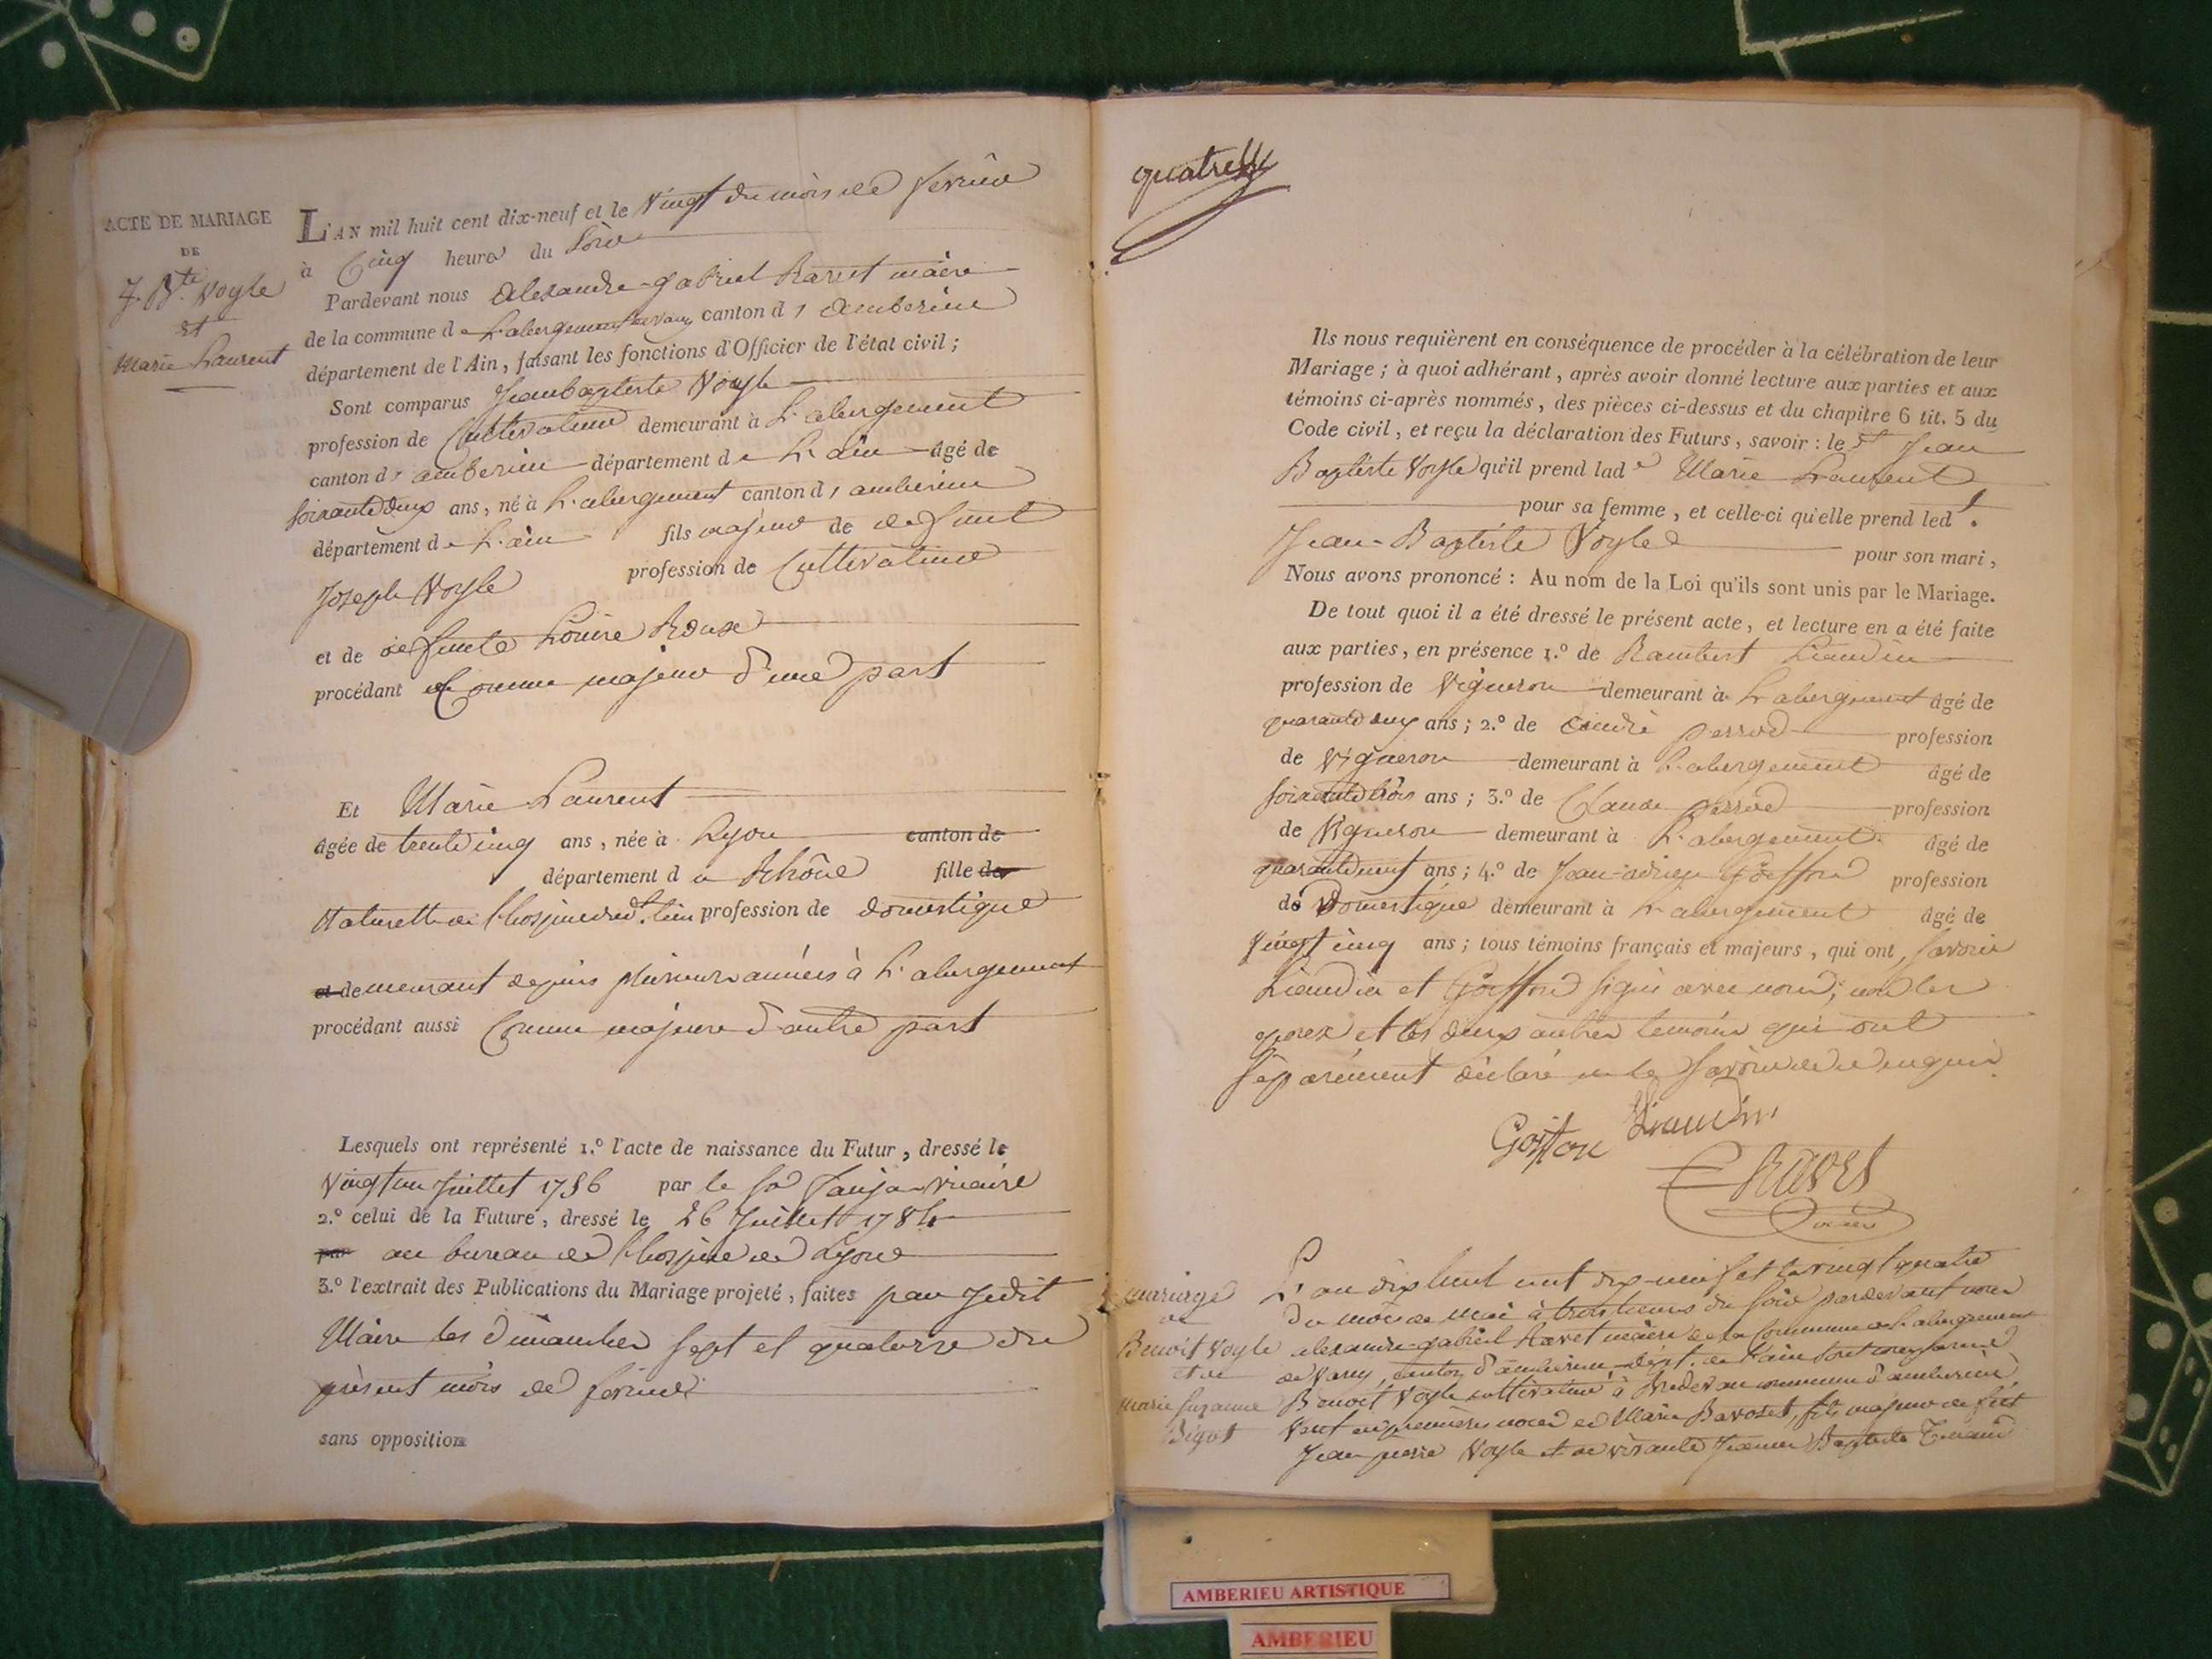 ACTE DE MARIAGE
DE
J. Bte. Voyle
et
Marie Laurent
L'AN mil huit cent dix-neuf et le vingt du mois de fevrier
à Cinq heures du Soir
Pardevant nous Alexandre-gabriel Ravet maire
de la commune de L'abergement de varey canton d'amberieu
département de l'Ain, faisant les fonctions d'Officier de l'état civil;
Sont comparus Jeanbaptiste Voyle
profession de Cultivateur demeurant à L'abergement
canton d'amberieu département de L'ain âgé de
soixante deux ans, né à L'abergement canton d'amberieu
département de L'ain fils majeur de defunt
Joseph Voyle profession de Cultivateur
et de defunte Louise Roux
procédant Comme majeur d'une part
Et Marie Laurent
âgée de trente cinq ans, née à Lyon canton de
département du Rhône fille de
Naturelle de l'hospice dud. lieu profession de domestique
et demeurant depuis plusieurs années à L'abergement
procédant aussi Comme majeure d'autre part
Lesquels ont représenté 1.º l'acte de naissance du Futur, dressé le
vingt un Juillet 1756 par le Sr vicaire
2.º celui de la Future, dressé le 26 Juillet 1784
par au bureau de l'hospice de Lyon
3.º l'extrait des Publications du Mariage projeté, faites par Jedit
Maire les dimanches sept et quatorze du
présent mois de fevrier
sans opposition
quatre
Ils nous requièrent en conséquence de procéder à la célébration de leur
Mariage; à quoi adhérant, après avoir donné lecture aux parties et aux
témoins ci-après nommés, des pièces ci-dessus et du chapitre 6 tit. 5 du
Code civil, et reçu la déclaration des Futurs, savoir: le Sr Jean
Baptiste Voyle qu'il prend lade Marie Laurent
pour sa femme, et celle-ci qu'elle prend ledt.
Jean-Baptiste Voyle pour son mari,
Nous avons prononcé: Au nom de la Loi qu'ils sont unis par le Mariage.
De tout quoi il a été dressé le présent acte, et lecture en a été faite
aux parties, en présence 1.º de Rambert Liaudin
profession de Vigneron demeurant à L'abergement âgé de
quarante deux ans; 2.º de André perrod profession
de Vigneron demeurant à L'abergement âgé de
soixante trois ans; 3.º de Claude perrod profession
de Vigneron demeurant à L'abergement âgé de
quarante neuf ans; 4.º de Jean-adrien Goiffon profession
de Domestique demeurant à L'abergement âgé de
vingt cinq ans; tous témoins français et majeurs, qui ont, savoir
Liaudin et Goiffon signé avec nous, non les
epoux et les deux autres temoins qui ont
séparément déclaré ne le savoir de ce enquis
Goiffon Liaudin
Ravet
maire
mariage
de
Benoit Voyle
et de
Marie Suzanne
Bigot
L'an dix huit cent dix-neuf et le vingt quatre
du mois de Mai à trois heures du soir pardevant nous
alexandre-gabriel Ravet maire de la Commune de L'abergement
de Varey, canton d'amberieu dépt. de l'ain sont comparus
Benoit Voyle cultivateur à commune d'amberieu,
veuf en premières noces de Marie Bavozet, fils majeur de fut
Jean pierre Voyle et de vivante Jeanne Baptiste Tenand
AMBERIEU ARTISTIQUE
AMBERIEU